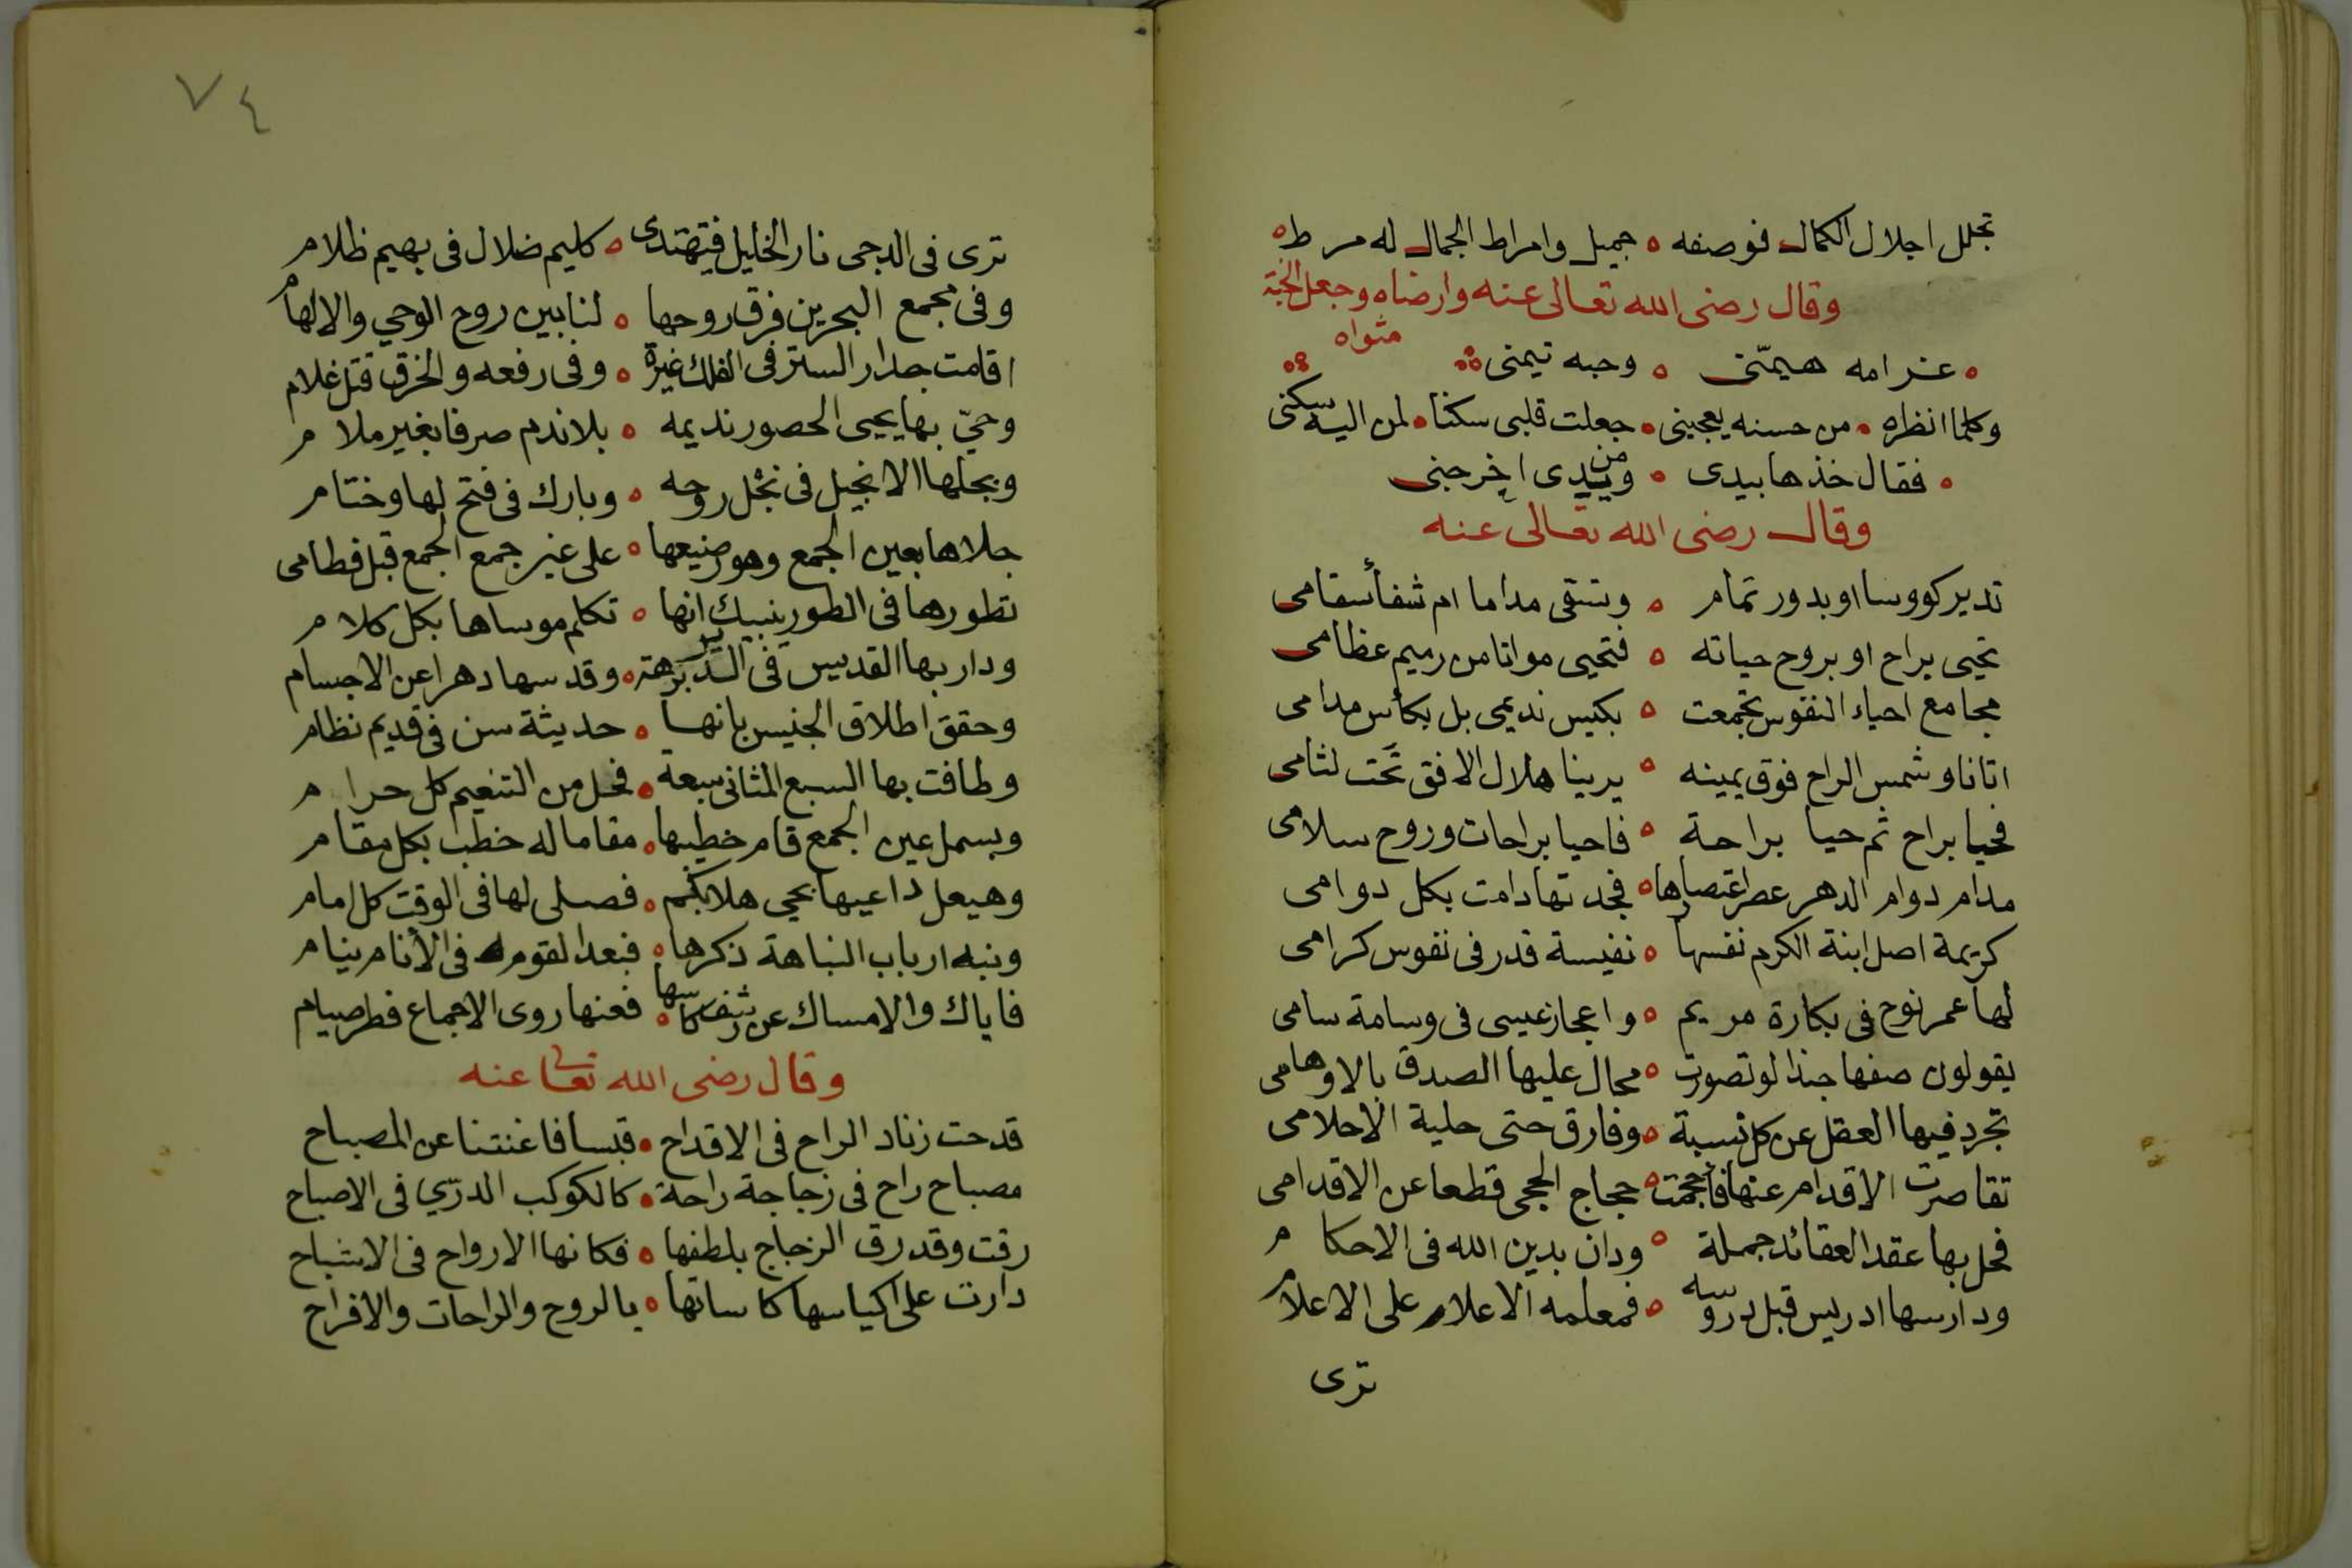 تجلل اجلال الكمال فوصفه ه جميل وامراط الجمال له مرط ه
وقال رضى الله تعالى عنه وارضاه وجعل الجنة
مثواه
ه غرامه هيمّنى ه وحبه تيمنى
وكلما انظره ه من حسنه يعجبنى ه جعلت قلبى سكنا ه لمن اليه سكنى
ه فقال خذها بيدى ه ومن يدى اخرجنى
وقال رضى الله تعالى عنه
تدير كووسا او بدور تمام ه وتسقى مداما ام شفأ سقامى
تحيى براح او بروح حياته ه فتحيى مواتا من رميم عظامى
مجامع احياء النفوس تجمعت ه بكيس نديمى بل بكأس مدامى
اتانا وشمس الراح فوق يمينه ه يرينا هلال الافق تحت لثامى
فحيا براح ثم حيا براحة ه فاحيا براحات وروح سلامى
مدام دوام الدهر عصر اعتصارها ه فجدتها دامت بكل دوامى
كريمة اصل ابنة الكرم نفسها ه نفيسة قدر فى نفوس كرامى
لها عمر نوح فى بكارة مريم ه واعجاز عيسى فى وسامة سامى
يقولون صفها حبذا لو تصورت ه محال عليها الصدق بالاوهامى
تجرد فيها العقل عن كل نسبة ه وفارق حتى حلية الاحلامى
تقاصرت الاقدام عنها فأحجمت ه حجاج الحجى قطعا عن الاقدامى
فحل بها عقد العقائد جملة ه ودان بدين الله فى الاحكام
ودارسها ادريس قبل دروسه ه فمعلمه الاعلام على الاعلام
ترى
٧٤
ترى فى الدجى نار الخليل فيهتدى ه كليم ضلال فى بهيم ظلام
وفى مجمع البحرين فرق روحها ه لنا بين روح الوحي والالهام
اقامت جدار الستر فى الفلك غيرة ه وفى رفعه والخرق قتل غلام
وحيّ بها يحيى الحصور نديمه ه بلا ندم صرفا بغير ملام
وبجلها الانجيل فى نجل روحه ه وبارك فى فتح لها وختام
جلاها بعين الجمع وهو رضيعها ه على غير جمع الجمع قبل فطامى
تطورها فى الطور ينبيك انها ه تكلم موساها بكل كلام
ودار بها القديس فى الدير برهة ه وقدسها دهرا عن الاجسام
وحقق اطلاق الجنيس بانها ه حديثة سن فى قديم نظام
وطافت بها السبع المثانى سبعة ه فحل من التنعيم كل حرام
وبسمل عين الجمع قام خطيبها ه مقاما له خطب بكل مقام
وهيعل داعيها بحي هلا بكم ه فصلى لها فى الوقت كل امام
ونبه ارباب النباهة ذكرها ه فبعدا لقوم فى الأنام نيام
فاياك والامساك عن رشف كاسها ه فعنها روى الاجماع فطر صيام
وقال رضى الله تعالى عنه
قدحت زناد الراح فى الاقداح ه قبسا فاغنتنا عن المصباح
مصباح راح فى زجاجة راحة ه كالكوكب الدرّي فى الاصباح
رقت وقد رق الزجاج بلطفها ه فكانها الارواح فى الاشباح
دارت على اكياسها كاساتها ه بالروح والراحات والافراح